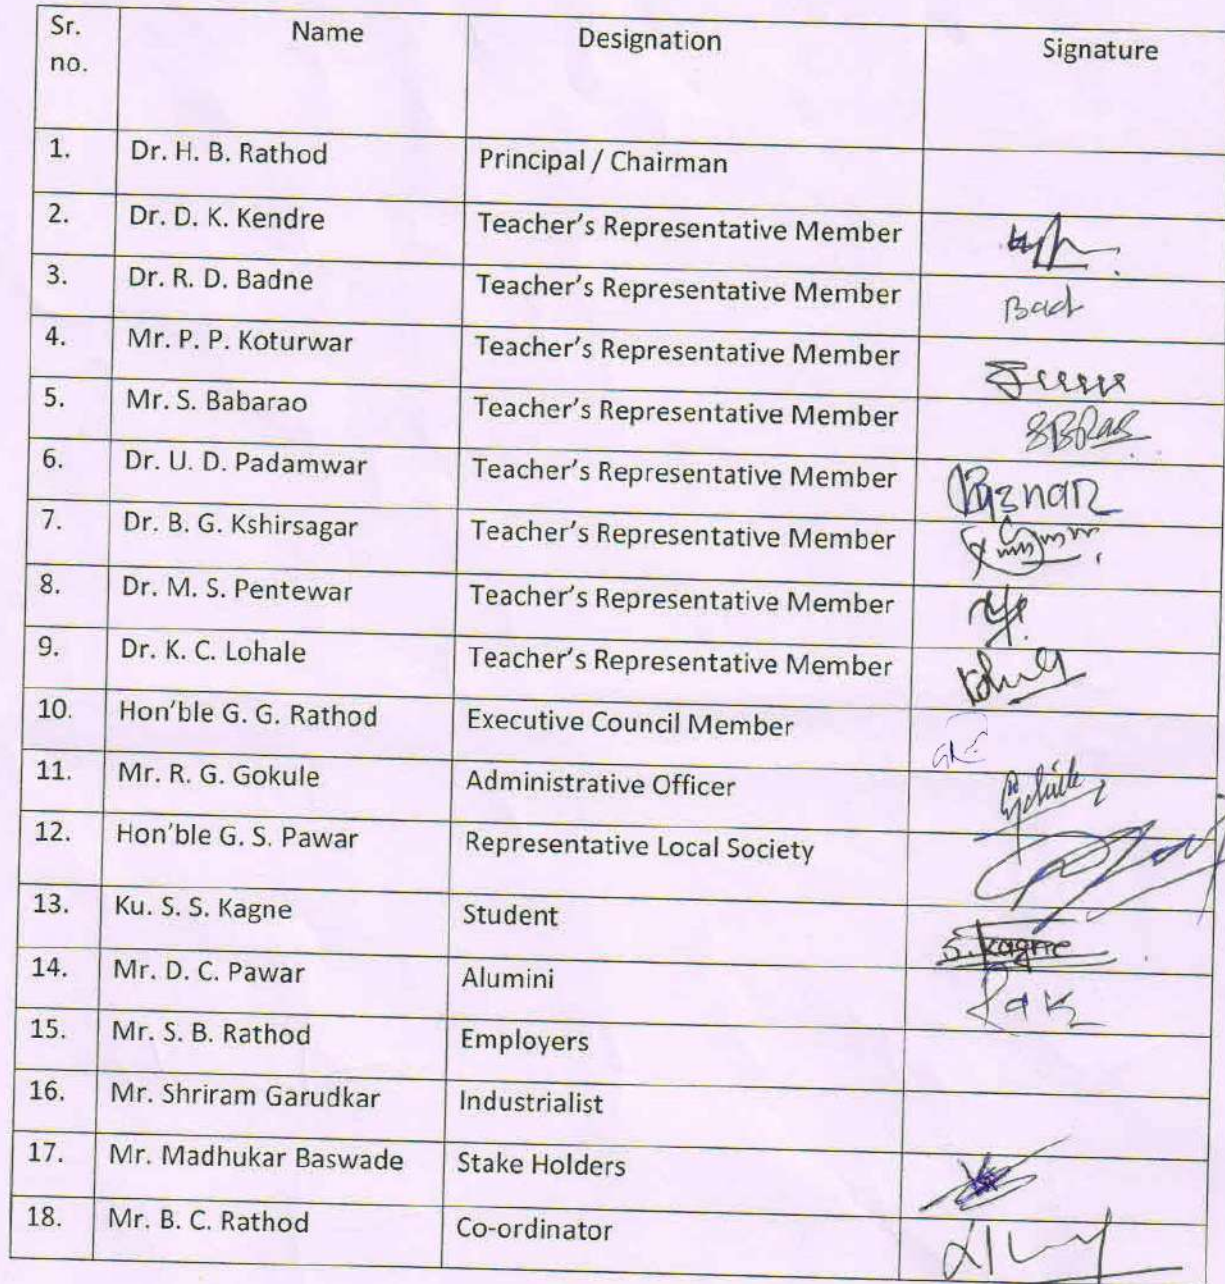 Sr. no. Name Designation Signature
1. Dr. H. B. Rathod Principal / Chairman
2. Dr. D. K. Kendre Teacher's Representative Member
3. Dr. R. D. Badne Teacher's Representative Member Bad
4. Mr. P. P. Koturwar Teacher's Representative Member
5. Mr. S. Babarao Teacher's Representative Member SBRao
6. Dr. U. D. Padamwar Teacher's Representative Member
7. Dr. B. G. Kshirsagar Teacher's Representative Member
8. Dr. M. S. Pentewar Teacher's Representative Member
9. Dr. K. C. Lohale Teacher's Representative Member
10. Hon'ble G. G. Rathod Executive Council Member
11. Mr. R. G. Gokule Administrative Officer
12. Hon'ble G. S. Pawar Representative Local Society
13. Ku. S. S. Kagne Student S. Kagne
14. Mr. D. C. Pawar Alumini
15. Mr. S. B. Rathod Employers
16. Mr. Shriram Garudkar Industrialist
17. Mr. Madhukar Baswade Stake Holders
18. Mr. B. C. Rathod Co-ordinator